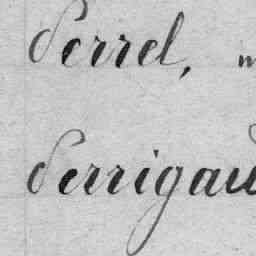 Perrel,
Perrigau